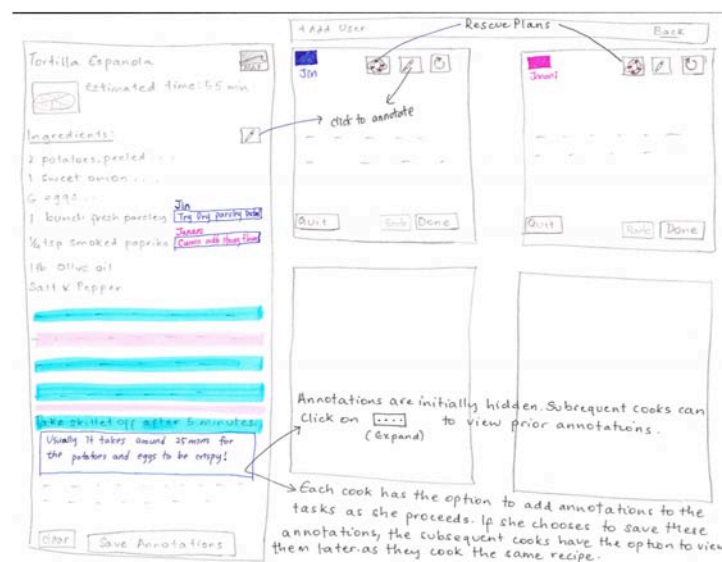 Tortilla Espanola
estimated time: 55 min
Ingredients:
2 potatoes, peeled . . .
1 sweet onion . . .
6 eggs . . .
1 bunch fresh parsley
Jin
Try Dry parsley
1/4 tsp smoked paprika
Janani
1lb Olive oil
Salt & Pepper
Take skillet off after 5 minutes
Usually it takes around 25 mins for
the potatoes and eggs to be crispy!
Clear
Save Annotations
+ Add User
Rescue Plans
Back
Jin
click to annotate
Quit
Done
Janani
Quit
Done
Annotations are initially hidden. Subsequent cooks can
Click on .... to view prior annotations.
(Expand)
Each cook has the option to add annotations to the
tasks as she proceeds. If she chooses to save these
annotations, the subsequent cooks have the option to view
them later as they cook the same recipe.